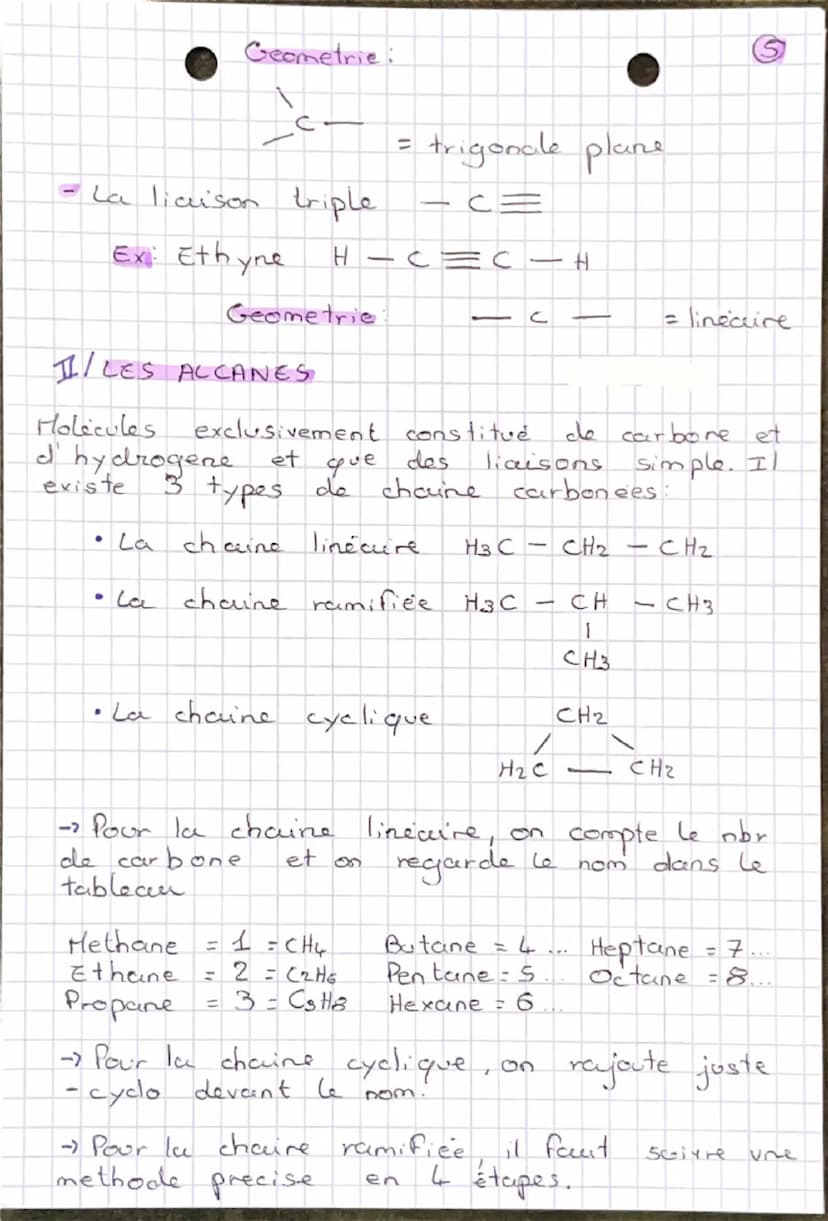 Geometrie : 5
\
C —
/
= trigonale plane
- La liaison triple — C≡
Ex: Ethyne H — C ≡ C — H
Geometrie: — C — = linéaire
II/ LES ALCANES
Molécules exclusivement constitué de carbone et
d'hydrogene et que des liaisons simple. Il
existe 3 types de chaine carbonées:
• La chaine linéaire H3C — CH2 — CH2
• La chaine ramifiée H3C — CH — CH3
|
CH3
• La chaine cyclique CH2
/ \
H2C — CH2
-> Pour la chaine linéaire, on compte le nbr
de carbone et on regarde le nom dans le
tableau
Methane = 1 = CH4 Butane = 4 ... Heptane = 7 ...
Ethane = 2 = C2H6 Pentane = 5 ... Octane = 8 ...
Propane = 3 = C3H8 Hexane = 6 ...
-> Pour la chaine cyclique, on rajoute juste
- cyclo devant le nom.
-> Pour la chaine ramifiée, il faut suivre une
methode precise en 4 étapes.